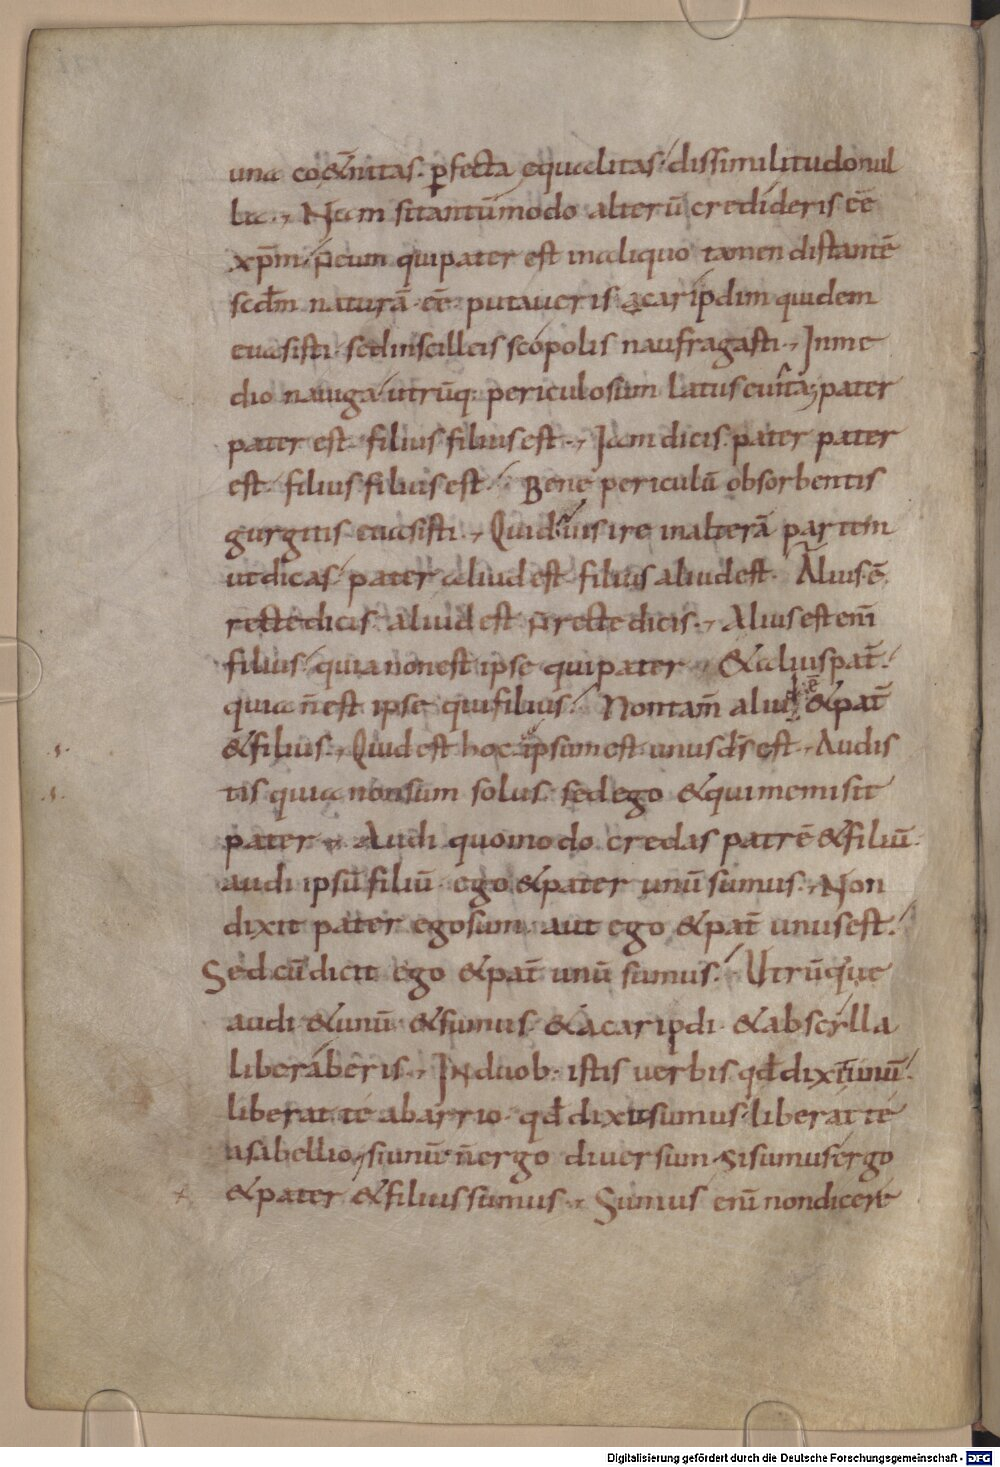 una co&ñitas. ꝑfecta equalitas. dissimilitudo nul
la., Nam si tantūmodo alterū credideris eē
xp̄m. p̄cum qui pater est in aliquo tamen distantē
scd̄m naturā eē putaueris, acaripdim quidem
euasisti. sed in scilleis scopolis naufragasti., In me
dio nauiga. utrūq: periculosum latus euita; pater
pater est. filius filius est., Iam dicis. pater pater
est. filius filius est. Bene periculū obsorbentis
gurgitis euasisti., Quid uis ire in alterā partem
ut dicas. pater aliud est filius aliud est. Alius ē
recte dicis. aliud est n̄ recte dicis., Alius est em̄
filius. quia non est ipse qui pater., & alius pat̄.
quia n̄ est ipse qui filius. Non tam̄ aliud & pat̄
& filius., Quid est hoc ipsum est. unus d̄s est., Audis
tis quia non sum solus. sed ego & qui me misit
pater., Audi quomodo credas patrē & filiū.
audi ipsū filiū. ego & pater unū sumus., Non
dixit pater ego sum. aut ego & pat̄ unus est.
Sed cū dicit ego & pat̄ unū sumus. Utrūque
audi & unū. & sumus. & a caripdi. & ab scylla
liberaberis., In duob. istis uerbis. qd̄ dixit unū.
liberat te ab arrio. qd̄ dixit sumus. liberat te
a sabellio, si unū n̄ ergo diuersum. si sumus ergo
& pater & filius sumus., Sumus eni nondicere
Digitalisierung gefördert durch die Deutsche Forschungsgemeinschaft - DFG